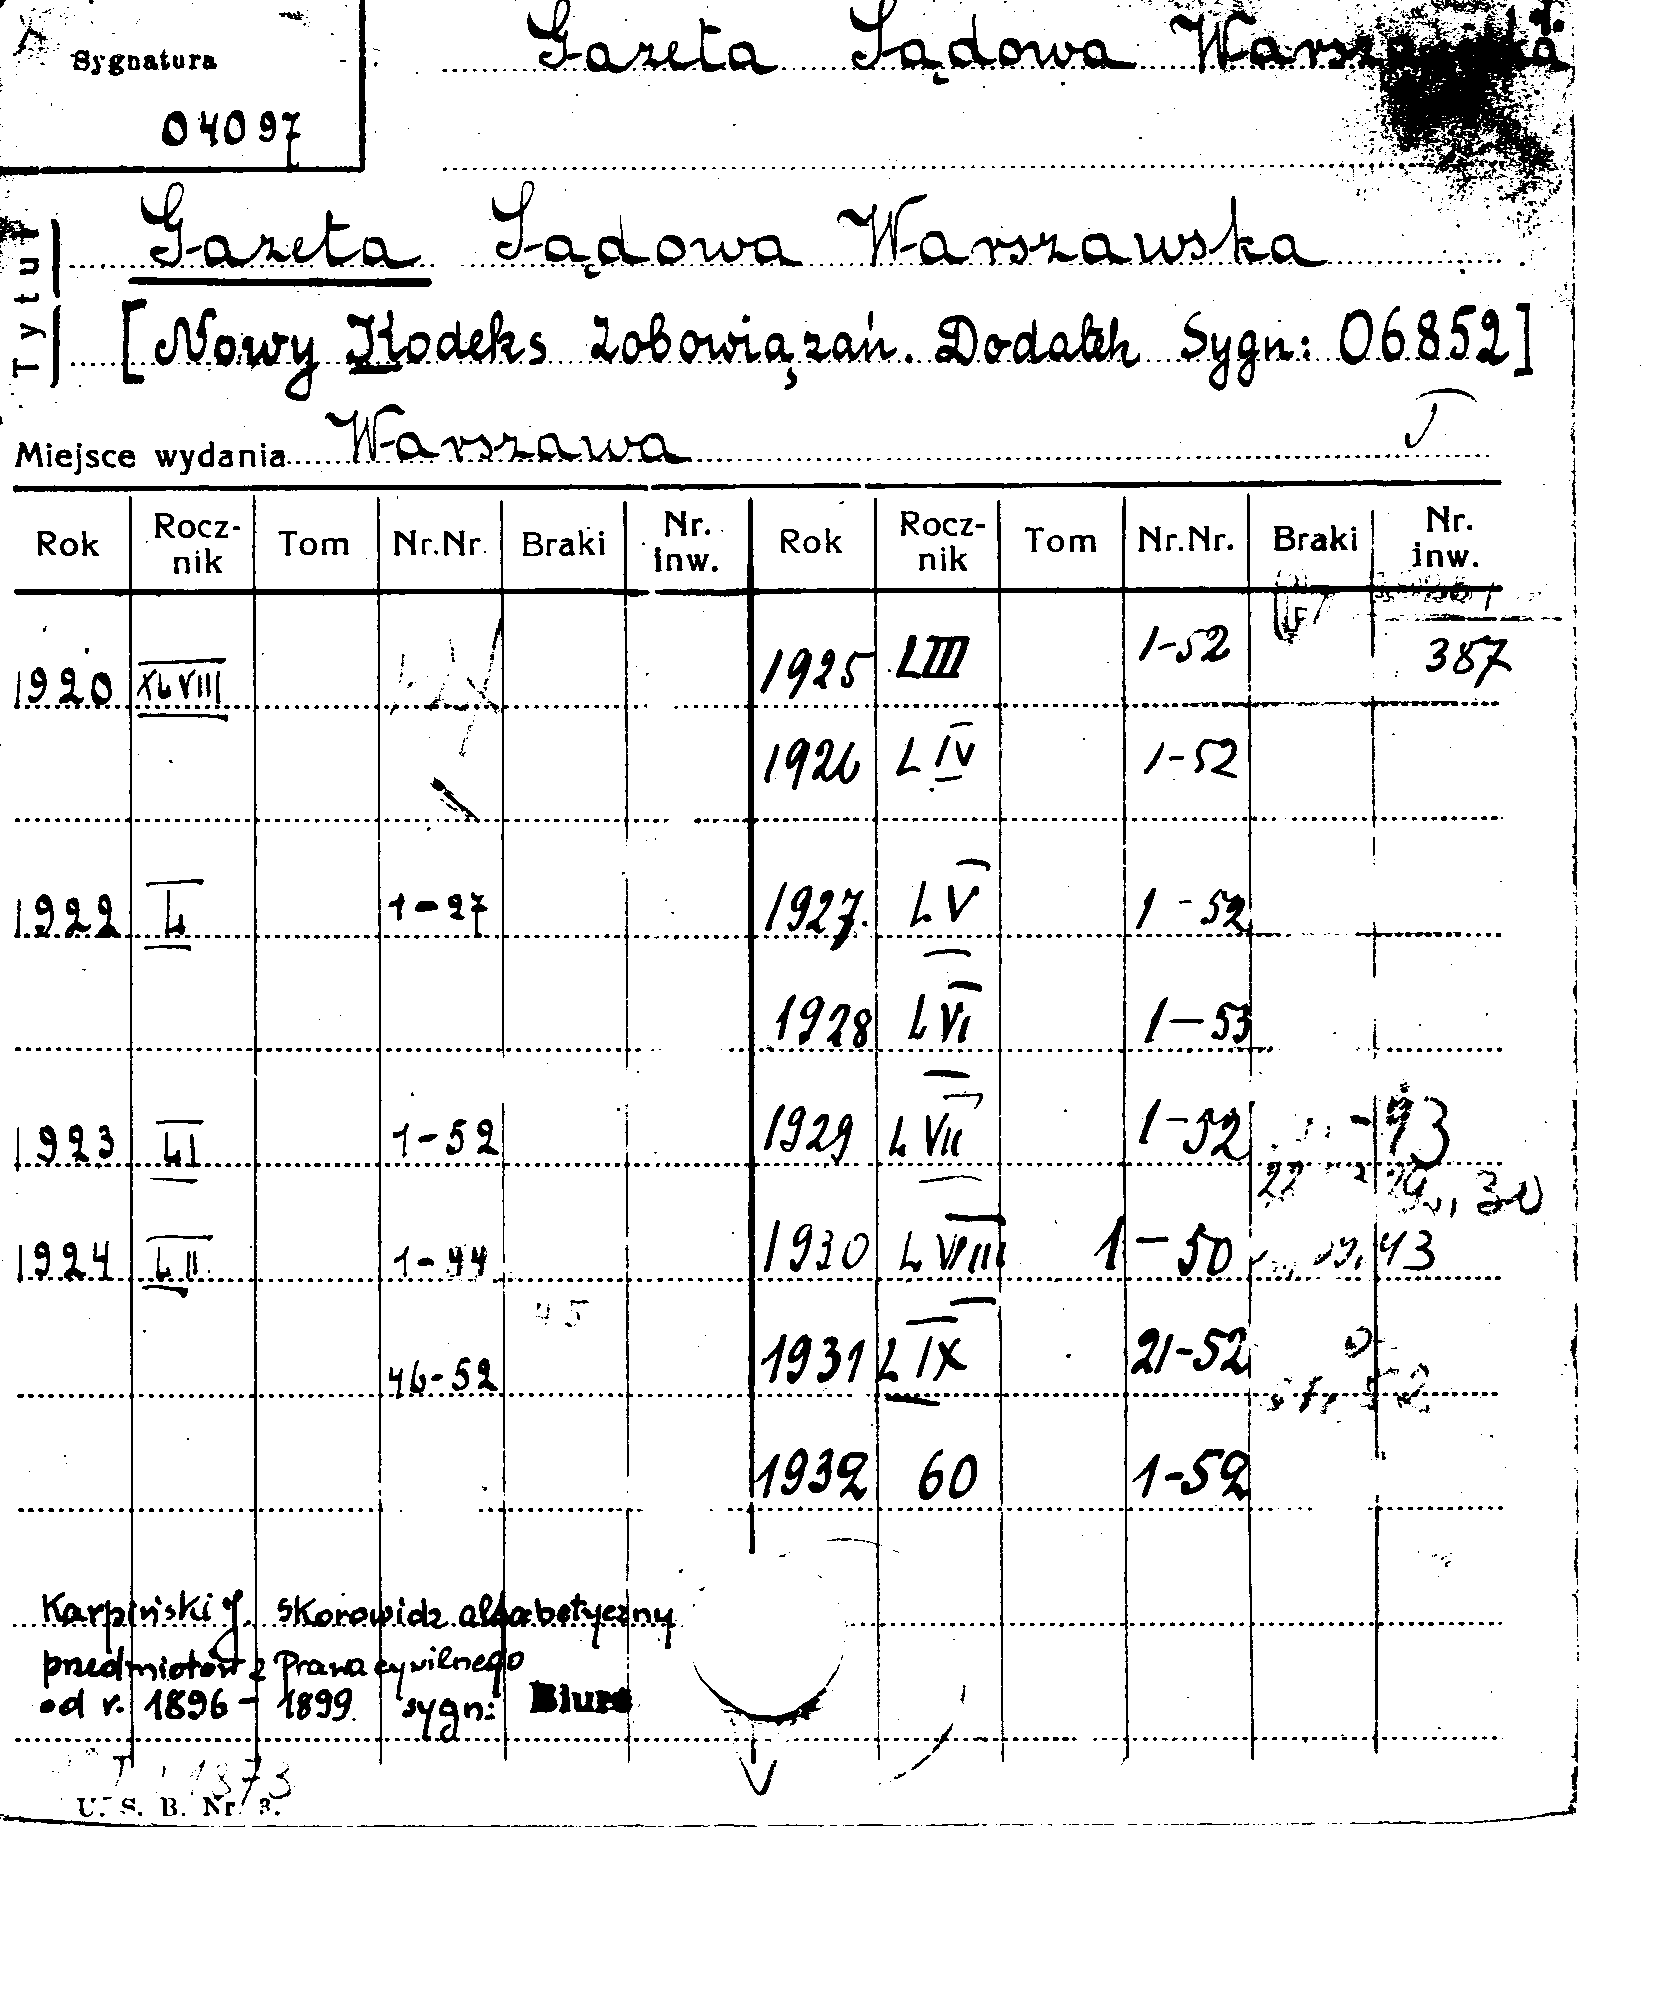 Sygnatura
04097
Gazeta Sądowa Warszawska
Tytuł
Gazeta Sądowa Warszawska
[Nowy Kodeks Zobowiązań. Dodatek Sygn: 06852]
Miejsce wydania Warszawa
Rok Rocz-nik Tom Nr.Nr. Braki Nr. inw. Rok Rocz-nik Tom Nr.Nr. Braki Nr. inw.
1920 XLVIII 1925 LIII 1-52 387
1926 LIV 1-52
1922 L 1-27 1927. LV 1-52
1928 LVI 1-53
1923 LI 1-52 1929 LVII 1-52
1924 LII 1-44 1930 LVIII 1-50
45
46-52 1931 LIX 21-52
1932 60 1-52
Karpiński J. Skorowidz alfabetyczny
przedmiotów z Prawa cywilnego
od r. 1896 - 1899 sygn: Biuro
U. S. B. Nr. 3.